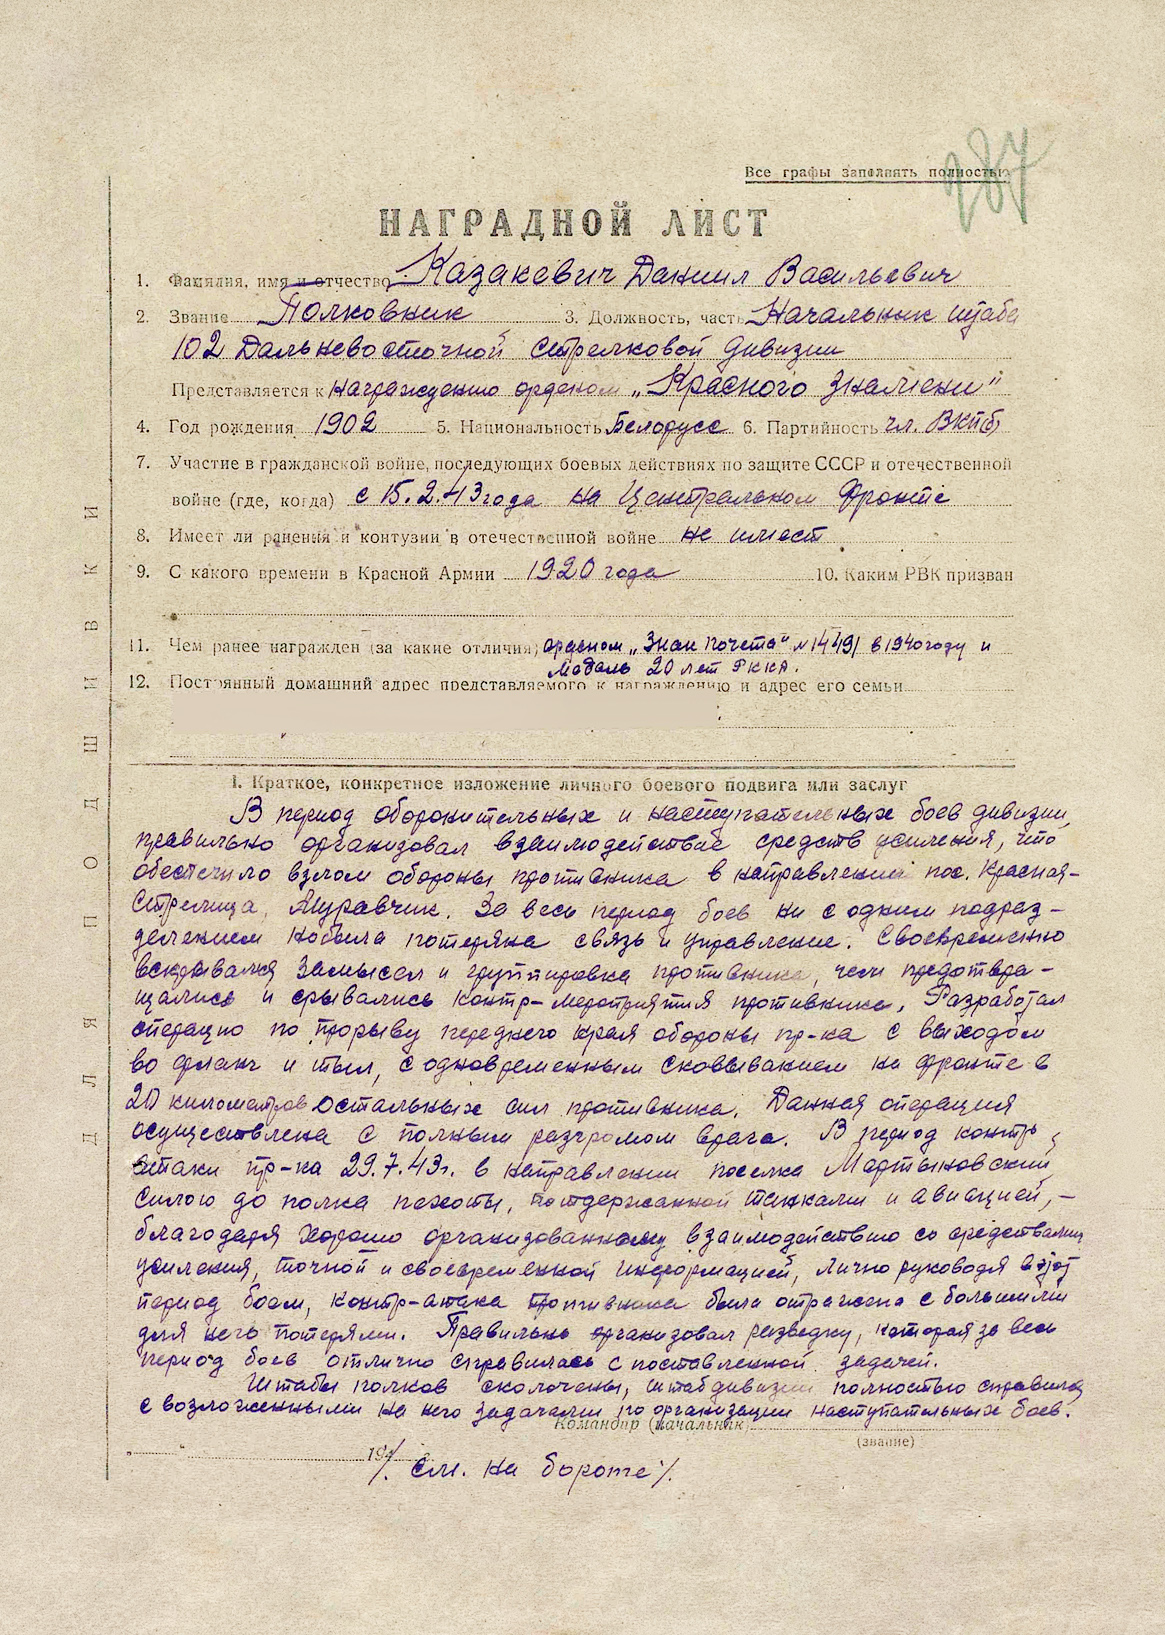 287
Все графы заполнять полностью
НАГРАДНОЙ ЛИСТ
1. Фамилия, имя и отчество Казакевич Даниил Васильевич
2. Звание Полковник 3. Должность, часть Начальник штаба
102 Дальневосточной стрелковой дивизии
Представляется к награждению орденом „Красного Знамени"
4. Год рождения 1902 5. Национальность Белорусс 6. Партийность чл. ВКП(б)
7. Участие в гражданской войне, последующих боевых действиях по защите СССР и отечественной
войне (где, когда) с 15.2.43 года на Центральном фронте
8. Имеет ли ранения и контузии в отечественной войне не имеет
9. С какого времени в Красной Армии 1920 года 10. Каким РВК призван
11. Чем ранее награжден (за какие отличия) орденом „Знак почета" № 14491 в 1940 году и
медаль 20 лет РККА.
12. Постоянный домашний адрес представляемого к награждению и адрес его семьи
ДЛЯ ПОДШИВКИ
I. Краткое, конкретное изложение личного боевого подвига или заслуг
В период оборонительных и наступательных боев дивизии,
правильно организовал взаимодействие средств усиления, что
обеспечило взлом обороны противника в направлении пос. Красная-
Стрелица, Муравчик. За весь период боев ни с одним подраз-
делением небыла потеряна связь и управление. Своевременно
вскрывался замысел и группировка противника, чем предотвра-
щались и срывались контр-мероприятия противника. Разработал
операцию по прорыву переднего края обороны пр-ка с выходом
во фланг и тыл, с одновременным сковыванием на фронте в
20 километров остальных сил противника. Данная операция
осуществлена с полным разгромом врага. В период контр
атаки пр-ка 29.7.43г. в направлении поселка Мартыновский,
силою до полка пехоты, поддержанной танками и авиацией, –
благодаря хорошо организованному взаимодействию со средствами
усиления, точной и своевременной информацией, лично руководя в этот
период боем, контр-атака противника была отражена с большими
для него потерями. Правильно организовал разведку, которая за весь
период боев отлично справилась с поставленной задачей.
Штабы полков сколочены, штаб дивизии полностью справился
с возложенными на него задачами по организации наступательных боев.
Командир (начальник)
(звание)
„ " 194
·/. см. на обороте ·/.